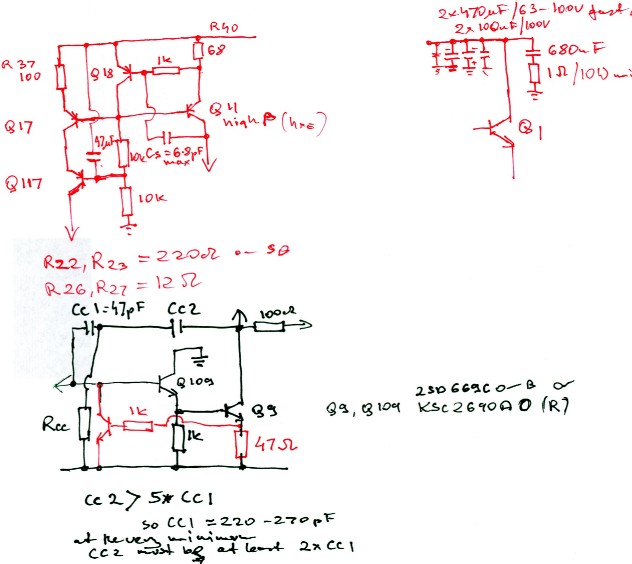 2x470µF/63-100V fast
2x100uF/100V
R40
R37
100
Q18
1k
68
680uF
1Ω/10W
Q11
high β (hFE)
Q1
Q17
47µF
10k
Cs=6.8pF
max
Q117
10k
R22, R23 = 220Ω
R26, R27 = 12Ω
Cc1=47pF
Cc2
100Ω
Q109
2SD669C
Q9
Q9, Q109 KSC2690A O (R)
Rcc
1k
1k
47Ω
CC2 > 5* CC1
so CC1 = 220-270pF
at the very minimum
CC2 must be at least 2xCC1